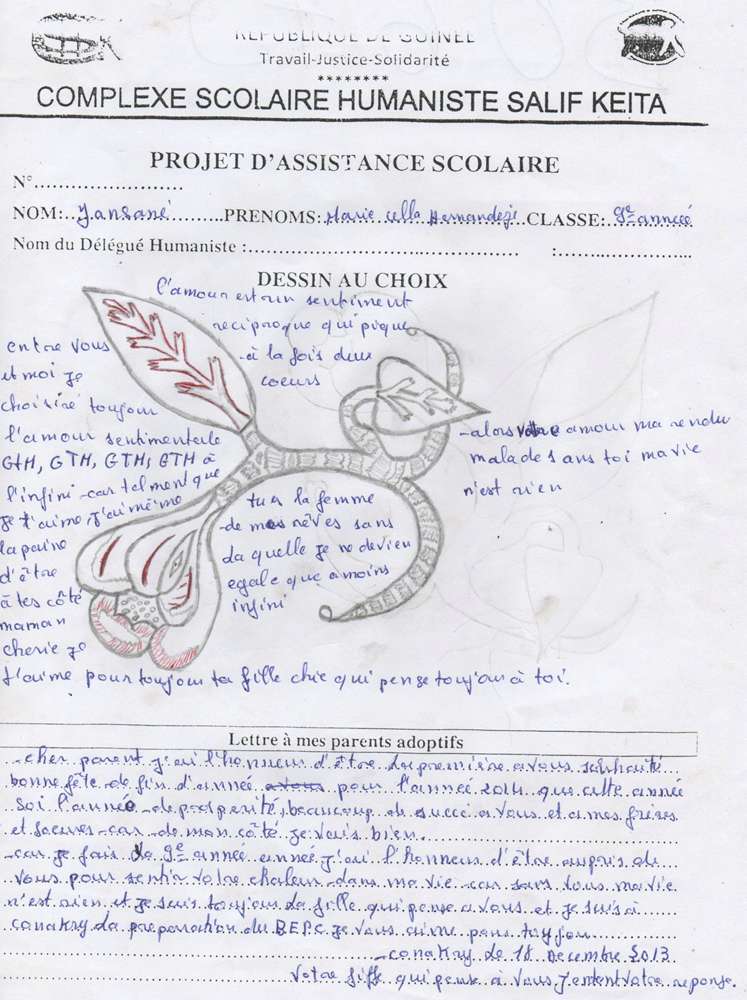 REPUBLIQUE DE GUINEE
Travail-Justice-Solidarité
********
COMPLEXE SCOLAIRE HUMANISTE SALIF KEITA
PROJET D'ASSISTANCE SCOLAIRE
N°........................
NOM:..Jansané.........PRENOMS: Marie cella Hernandezi CLASSE: 9e année
Nom du Délégué Humaniste :............................................ :......................
DESSIN AU CHOIX
l'amour est un sentiment
reciproque qui pique
à la fois deux
coeurs
entre vous
et moi je
choisiré toujour
l'amour sentimentale
GTH, GTH, GTH, GTH à
l'infini car telment que
je t'aime, j'ai même
la paine
d'être
à tes côté
maman
cherie je
t'aime pour toujour ta fille chie qui pense toujour à toi.
tu a la femme
de mes rêves sans
la quelle je ne devien
egale que à moins
infini
-alors votre amour ma rendu
malade s ans toi ma vie
n'est rien
Lettre à mes parents adoptifs
-cher parent j'ai l'honneur d'être la première a vous souhaité
bonne fête de fin d'année pour l'année 2014 que cette année
soi l'année de prosperité, beaucoup de succi a vous et a mes frères
et soeures car de mon côté je vais bien.
-car je fais la 9e année année j'ai l'honneur d'être aupris de
vous pour sentir votre chaleur dans ma vie car sans vous ma vie
n'est rien et je suis toujour la fille qui pense a vous et je suis à
conakry la preparation du B.E.P.C je vous aime pour toujou
conakry le 18 decembre 2013
votre fille qui pense à vous j'attent votre reponse.